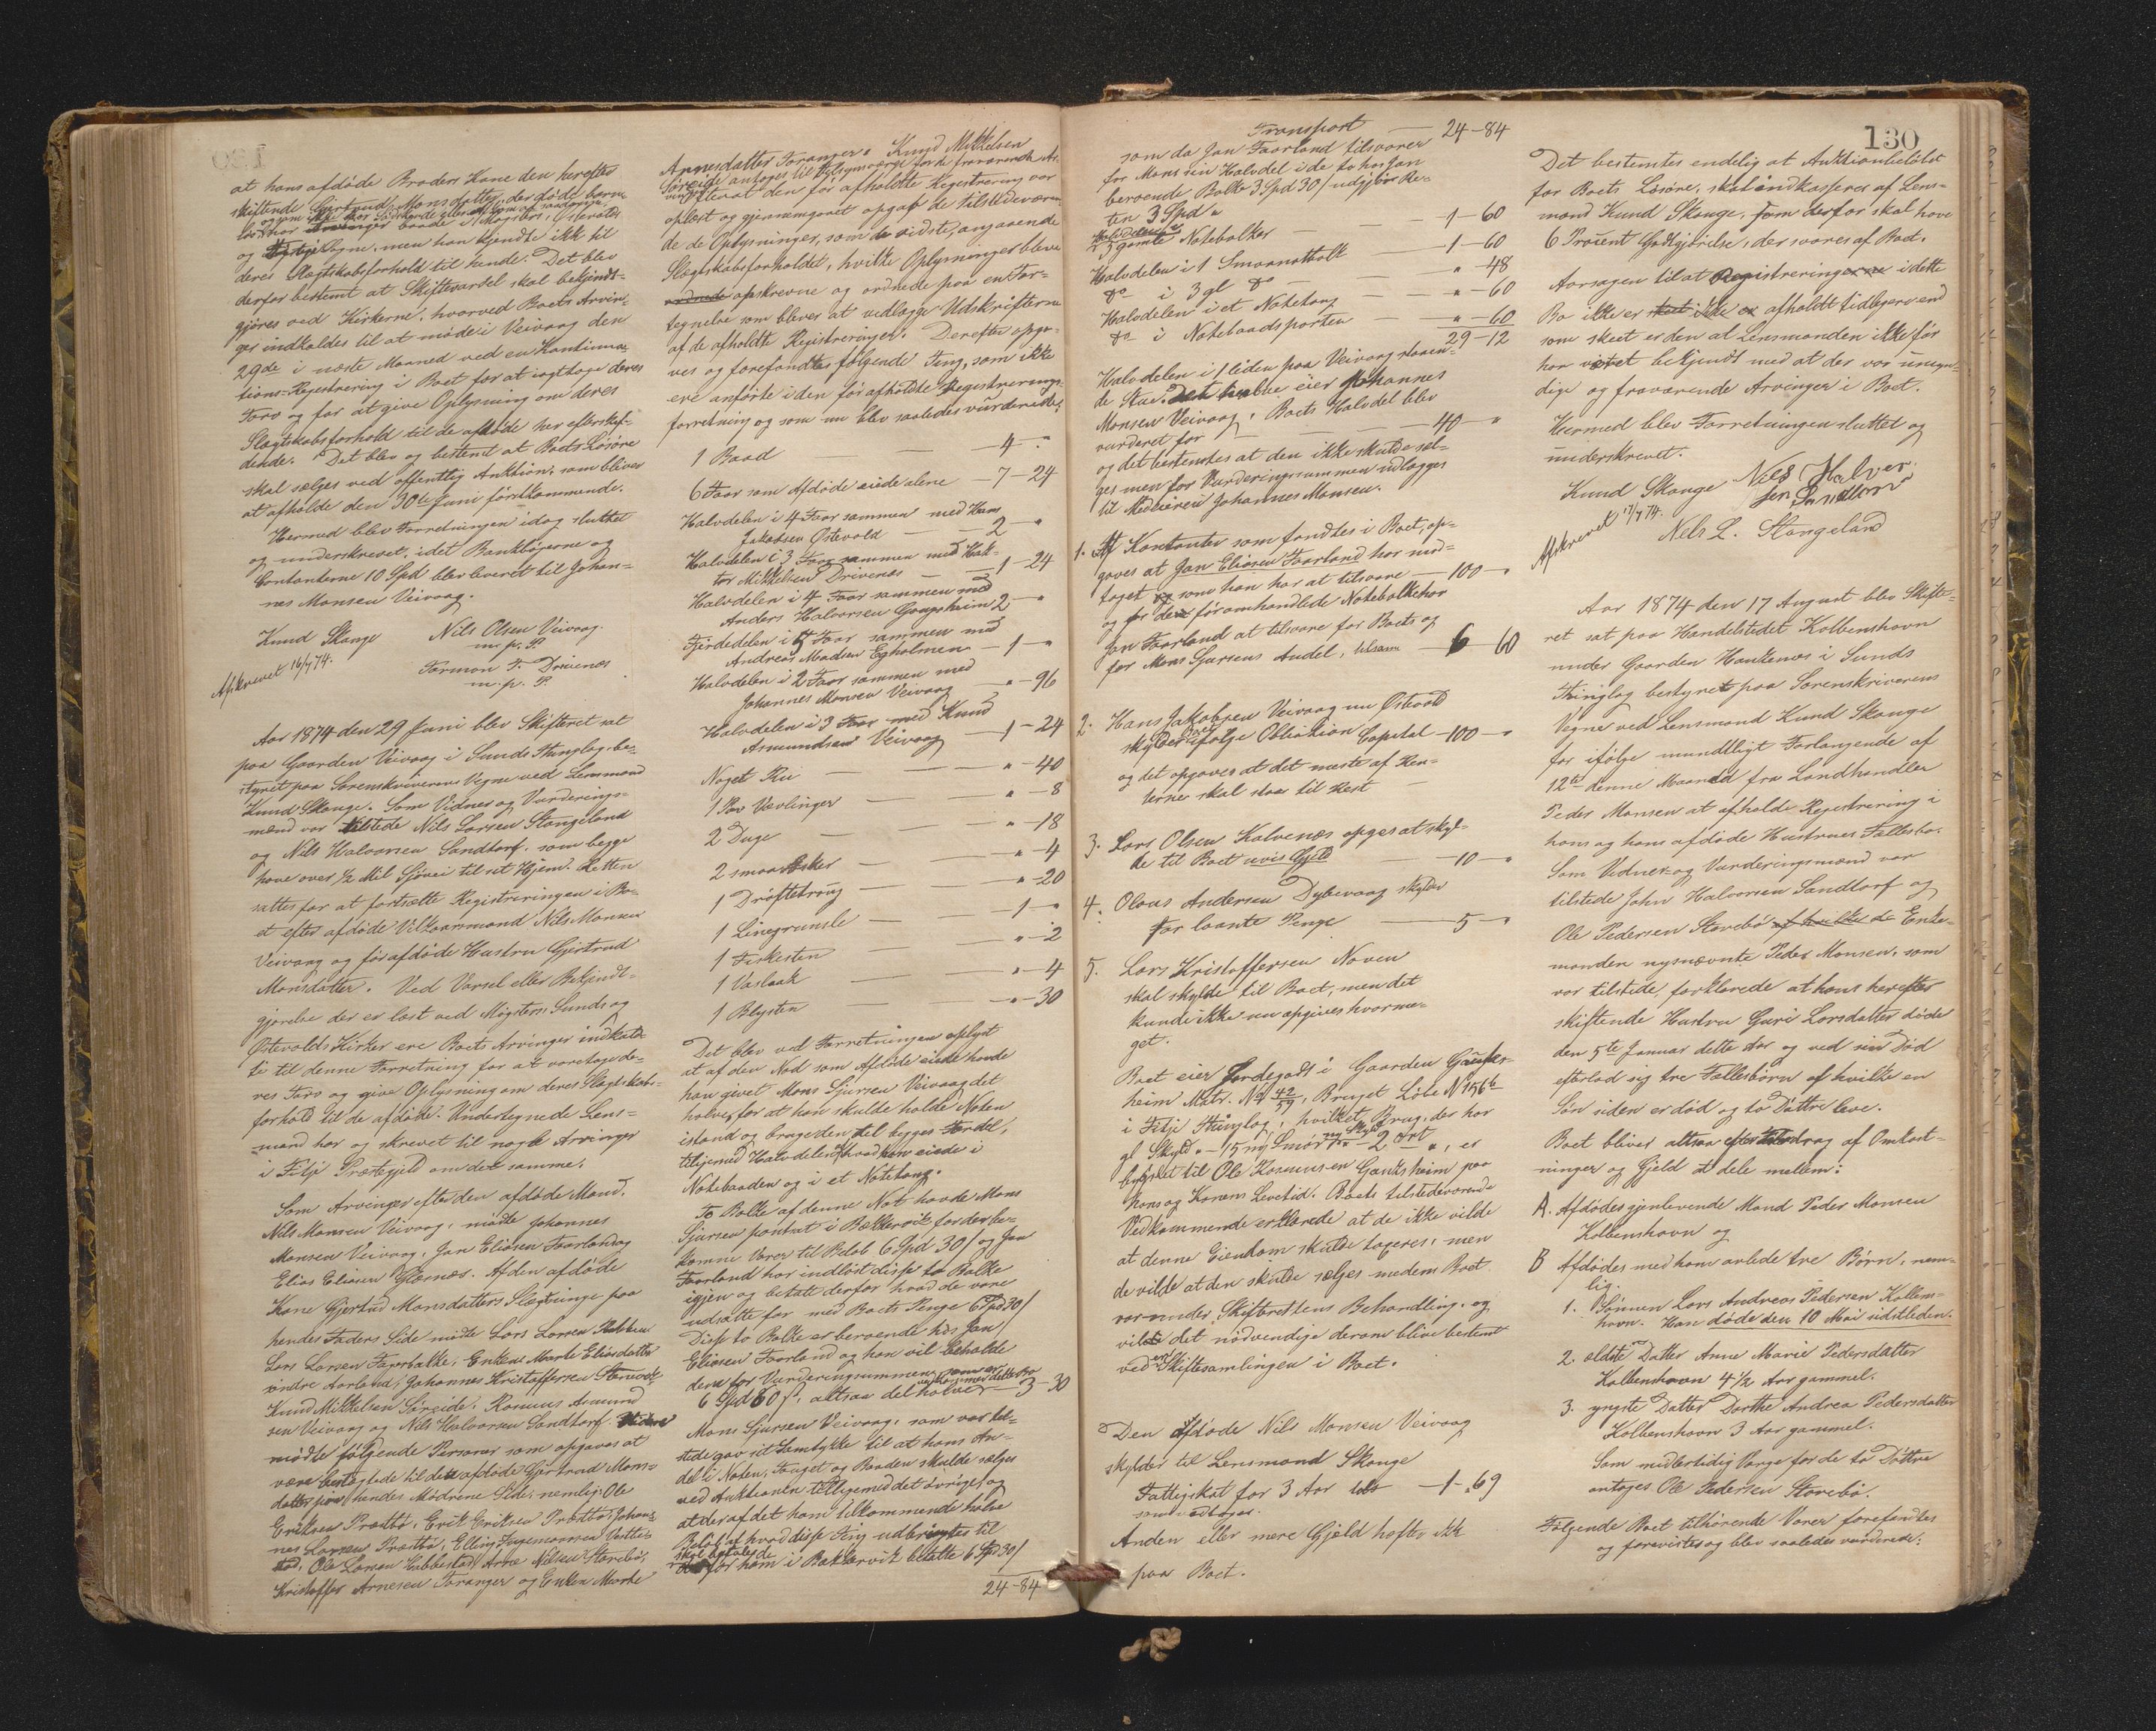 at hans afdöde Broders Kone den herefter
skiftende Gjertrud Monsdatter, der döde barn-
lös har Arvinger baade i Mögsters, Östevolds
og Fitje Sogne, men han kjendte ikk til
deres Slægtskabsforhold til hende. Det blev
derfor bestemt at Skiftevarsel skal bekjendt-
gjöres ved Kirkerne, hvorved Boets Arvin-
ger indkaldes til at möde i Veivaag den
29de i næste Maaned ved en Kontinua-
tions-Registrering i Boet for at iagttage deres
Tarv og for at give Oplysning om deres
Slægtskabsforhold til de afdöde her efterskif-
tende. Det blev og bestemt at Boets Lösöre
skal sælges ved offentlig Auktion, som bliver
at afholde den 30te Juni förstkommende.
Hermed blev Forretningen idag sluttet
og underskrevet, idet Bankbögerne og
Contanterne 10 Spd blev leveret til Johan-
nes Monsen Veivaag.
Knud Skange Nils Olsen Veivaag
m. p. P.
Afskrevet 16/7 74. Tormon T. Drivenæs
m. p. P.
Aar 1874 den 29 Juni blev Skifteret sat
paa Gaarden Veivaag i Sunds Thinglag, be-
styret paa Sorenskriverens Vegne ved Lensmand
Knud Skange. Som Vidner og Vurderings-
mænd var tilstede Nils Larsen Stangeland
og Nils Halvorsen Sandtorf, som begge
have over 1/2 Mil Sjövei til sit Hjem. Retten
sattes for at fortsætte Registreringen i Bo-
et efter afdöde Vilkaarsmand Nils Monsen
Veivaag og för afdöde Hustru Gjertrud
Monsdatter. Ved Varsel eller Bekjendt-
gjörelse der er læst ved Mögsters, Sunds og
Östevolds Kirker ere Boets Arvinger indkald-
te til denne Forretning for at varetage de-
res Tarv og give Oplysning om deres Slægtskabs-
forhold til de afdöde. Undertegnede Lens-
mand har og skrevet til nogle Arvinger
i Fitje Præstegjeld om det samme.
Som Arvinger efter den afdöde Mand,
Nils Monsen Veivaag, mödte Johannes
Monsen Veivaag, Jan Eliasen Faarland og
Elias Eliasen Glæsnæs. Af den afdöde
Kone Gjertrud Monsdatters Slægtninge paa
hendes Faders Side mödte Lars Larsen
Lars Larsen, Enken Marte Eliasdatter
indre Aarland, Johannes Kristoffersen
Knud Mikkelsen Söreide, Rasmus Asmund-
sen Veivaag og Nils Halvorsen Sandtorf. Videre
mödte fölgende Personer som opgaves at
være beslægtede til den afdöde Gjertrud Mons-
datter paa hendes Mödrene Side, nemlig: Ole
Eriksen Præstbö, Erik Eriksen Præstbö, Johan-
nes Larsen Præstbö, Elling Ingemansen
Ole Larsen, Arne Nilsen Storebö,
Kristoffer Arnesen Foranger og Enken Marte
Annesdatter Foranger. Knud Mikkelsen
Söreide antoges til Værge for de fraværende Ar-
vinger. Efterat den för afholdte Registrering var
oplæst og gjennemgaaet opgav de Tilstedeværen-
de de Oplysninger, som de vidste, angaaende
Slægtskabsforholdet, hvilke Oplysninger bleve
opskrevne og ordnede paa en For-
tegnelse som bliver at vedlægge Udskrifterne
af de afholdte Registreringer. Derefter opga-
ves og forefandtes fölgende Ting, som ikke
ere anförte i den för afholdte Registrerings-
forretning og som nu blev saaledes vurderede;
1 Baad — 4 - "
6 Faar som Afdöde eiede alene — 7 - 24
Halvdelen i 4 Faar sammen med Hans
Jakobsen Östevold — 2 - "
Halvdelen i 3 Faar sammen med
Mikkelsen Drivenæs — 1 - 24
Halvdelen i 4 Faar sammen med
Anders Halvorsen 2 - "
Fjerdedelen i 5 Faar sammen med
Andreas Madsen Egholmen — 1 - "
Halvdelen i 2 Faar sammen med
Johannes Monsen Veivaag — " - 96
Halvdelen i 3 Faar med Knud
Asmundsen Veivaag — 1 - 24
Noget — " - 40
1 Par — " - 8
2 Duge — " - 18
2 smaa Æsker — " - 4
1 Dröftetraug — " - 20
1 — 1 - "
1 — " - 2
1 — " - 4
1 Blysten — " - 30
Det blev ved Forretningen oplyst
at af den Nod som Afdöde eiede havde
han givet Mons Sjursen Veivaag det
halve, for at han skulde holde Noten
istand og bruge den til begges Fordel,
tilligemed Halvdelen af hvad han eiede i
Notebaaden og i et Notetoug.
To Bolke af denne Not havde Mons
Sjursen pantsat i Bekkervik for der be-
komne Varer til Belöb 6 Spd 30 ß og Jan
Faarland har indlöst disse to Bolke
igjen og betalt derfor hvad de vare
udsatte for med Boets Penge 6 Spd 30 ß
Disse to Bolke er beroende hos Jan
Eliasen Faarland og han vil beholde
dem for Vurderingsummen som er
6 Spd 60 ß, altsaa det halve — 3 - 30
Mons Sjursen Veivaag, som var til-
stede gav sit Samtykke til at hans An-
del i Noten, Touget og Baaden skulde sælges
ved Auktionen tilligemed det övrige, og
at der af det ham tilkommende halve
Belöb af hvad disse Ting udbringes til
skal betales de
for ham i Bekkervik betalte 6 Spd 30 ß
24 - 84
130
Transport — 24 - 84
som da Jan Faarland tilsvarer
for Mons sin Halvdel i de to hos Jan
beroende Bolke 3 Spd 30 ß udgjör Re-
sten 3 Spd "
Halvdelen i
3 gamle Notebolker — 1 - 60
Halvdelen i 1 — 1 - 60
do i 3 gl do — " - 48
Halvdelen i et Notetoug — " - 60
do i Notebaadsparten — " - 60
29 - 12
Halvdelen i 1 liden paa Veivaag staaen-
de Stue. Det halve eier Johannes
Monsen Veivaag. Boets Halvdel blev
vurderet for — 40 - "
og det bestemtes at den ikke skulde sæl-
ges men for Vurderingssummen udlægges
til Medeieren Johannes Monsen.
1. Af Kontanter som fandtes i Boet, op-
gaves at Jan Eliasen Faarland har mod-
taget og som han har at tilsvare — 100 - "
og for de föromhandlede Notebolke har
Jan Faarland at tilsvare for Boets og
for Mons Sjursens Andel, tilsam. — 6 - 60
2. Hans Jakobsen Veivaag nu Östevold
skylder ifölge Obligation Capital - 100 - "
og det opgaves at det meste af Ren-
terne skal staa til Rest
3. Lars Olsen Kalvenæs opges at skyl-
de til Boet uvis Gjeld — 10 - "
4. Olaus Andersen Dybevaag skylder
for laante Penge — 5 - "
5. Lars Kristoffersen Naven
skal skylde til Boet, men det
kunde ikke nu opgives hvorme-
get.
Boet eier Jordegods i Gaarden
heim Matr. No 42/59, Bruget Löbe No 156b
i Fitje Thinglag, hvilket Brug, der har
gl Skyld " - 15 mk Smör ny Skyld - 2 Ort " , er
bygslet til Ole Rasmussen Gauksheim paa
hans og Konens Levetid. Boets tilstedeværende
Vedkommende erklærede at de ikke vilde
at denne Eiendom skulde taxeres; men
de vilde at den skulde sælges medens Boet
var under Skifterettens Behandling, og
vilde det nödvendige derom blive bestemt
ved en Skiftesamlingen i Boet.
Den afdöde Nils Monsen Veivaag
skylder til Lensmand Skange
Fattigskat for 3 Aar — 1 - 69
som vedtoges.
Anden eller mere Gjæld hefter ikk
paa Boet.
Det bestemtes endelig at Auktionbelöbet
for Boets Lösöre, skal indkasseres af Lens-
mand Knud Skange, som derfor skal have
6 Procent Godtgjörelse, der svares af Boet.
Aarsagen til at Registreringerne i dette
Bo ikke er afholdt tidligere end
som skeet er den at Lensmanden ikke för
har været bekjendt med at der var umyn-
dige og fraværende Arvinger i Boet.
Hermed blev Forretningen sluttet og
underskrevet.
Knud Skange Nils Halver
sen Sandtorv
Afskrevet 17/7 74. Nels L. Stangeland
Aar 1874 den 17 August blev Skifte-
ret sat paa Handelstedet Kolbenshavn
under Gaarden Haukenæs i Sunds
Thinglag bestyret paa Sorenskriverens
Vegne ved Lensmand Knud Skange
for ifölge mundtligt Forlangende af
12te denne Maaned fra Landhandler
Peder Monsen at afholde Registrering i
hans og hans afdöde Hustrues Fællesbo.
Som Vidner og Vurderingsmænd var
tilstede John Halvorsen Sandtorf og
Ole Pedersen Storebö af hvilke de Enke-
manden nysnævnte Peder Monsen, som
var tilstede, forklarede at hans herefter
skiftende Hustru Guri Larsdatter döde
den 5te Januar dette Aar og ved sin Död
efterlod sig tre Fællesbörn af hvilke en
Sön siden er död og to Döttre leve.
Boet bliver altsaa efter Fradrag af Omkost-
ninger og Gjeld at dele mellem:
A. Afdödes gjenlevende Mand Peder Monsen
Kolbenshavn og
B Afdödes med ham avlede tre Börn, nem-
lig.
1. Sönnen Lars Andreas Pedersen Kolbens-
havn. Han döde den 10 Mai sidstleden.
2. ældste Datter Anne Marie Pedersdatter
Kolbenshavn 4 1/2 Aar gammel.
3. yngste Datter Dorthe Andrea Pedersdatter
Kolbenshavn 3 Aar gammel.
Som midlertidig Værge for de to Döttre
antoges Ole Pedersen Storebö.
Fölgende Boet tilhörende Varer forefandtes
og forevistes og blev saaledes vurderede: